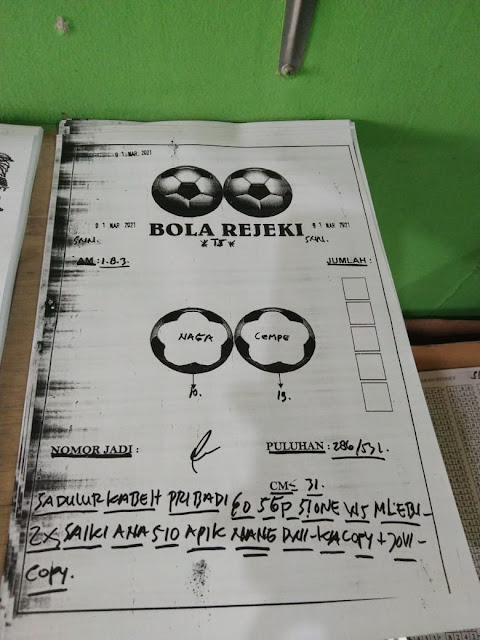 01 MAR 2021
01 MAR 2021 01 MAR 2021
BOLA REJEKI
SNN. * TS * SNN.
AM : 1.8.3. JUMLAH :
NAGA CEMPE
10. 19.
NOMOR JADI : PULUHAN : 286/531.
CM = 31.
SADULUR KABEH PRIBADI GO SGP STONE WS MLEBU-
2X, SAIKI ANA SIO APIK NANG DWI-KA COPY + JOVI-
COPY.